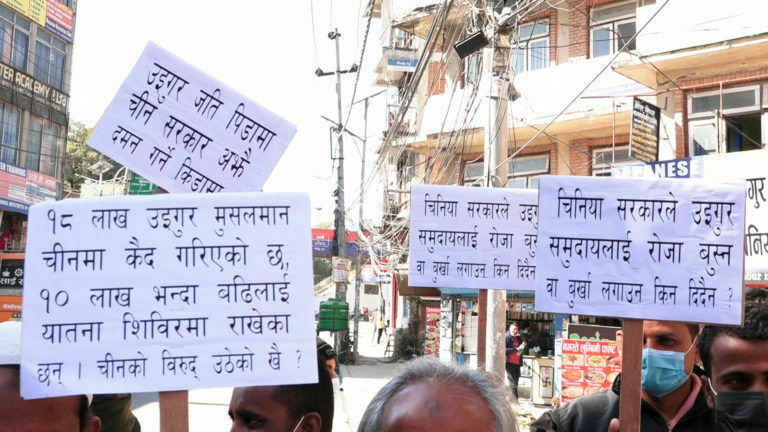 उइगुर जति पिडामा
चीन सरकार अझै
दमन गर्ने किडामा
१८ लाख उइगुर मुसलमान
चीनमा कैद गरिएको छ,,
१० लाख भन्दा बढिलाई
यातना शिविरमा राखेका
छन् । चीनको विरुद् उठेको खै ?
चिनिया सरकारले उइगु
समुदायलाई रोजा बुस्न
वा बुर्खा लगाउन किन दिदैन
चिनिया सरकारले उइगुर
समुदायलाई रोजा बुस्न
वा बुर्खा लगाउन किन दिदैन ?
TER ACADEMY
PANESE